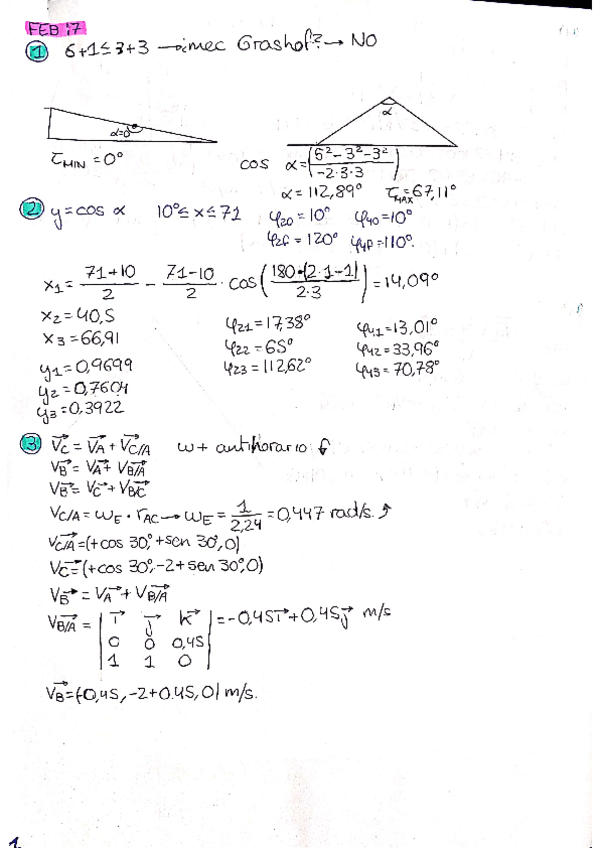 FEB 17
① 6+1≤3+3 → ¿mec Grashof? → NO
α=0 α
τMIN = 0° cos α = (6²-3²-3² / -2·3·3)
α = 112,89° τMAX = 67,11°
② y = cos α 10° ≤ x ≤ 71 φ20 = 10° φ40 = 10°
φ2f = 120° φ4f = 110°.
x1 = 71+10/2 - 71-10/2 · cos(180·(2·1-1)/2·3) = 14,09°
x2 = 40,5 φ21 = 17,38° φ41 = 13,01°
x3 = 66,91 φ22 = 65° φ42 = 33,96°
y1 = 0,9699 φ23 = 112,62° φ43 = 70,78°
y2 = 0,7604
y3 = 0,3922
③ VC = VA + VC/A w + antihorario
VB = VA + VB/A
VB = VC + VB/C
VC/A = ωE · rAC → ωE = 1/2,24 = 0,447 rad/s.
VC/A = (+cos 30°, +sen 30°, 0)
VC = (+cos 30°, -2 + sen 30°, 0)
VB = VA + VB/A
VB/A = | i j k | = -0,45i + 0,45j m/s
0 0 0,45
1 1 0
VB = (-0,45, -2+0.45, 0) m/s.
1